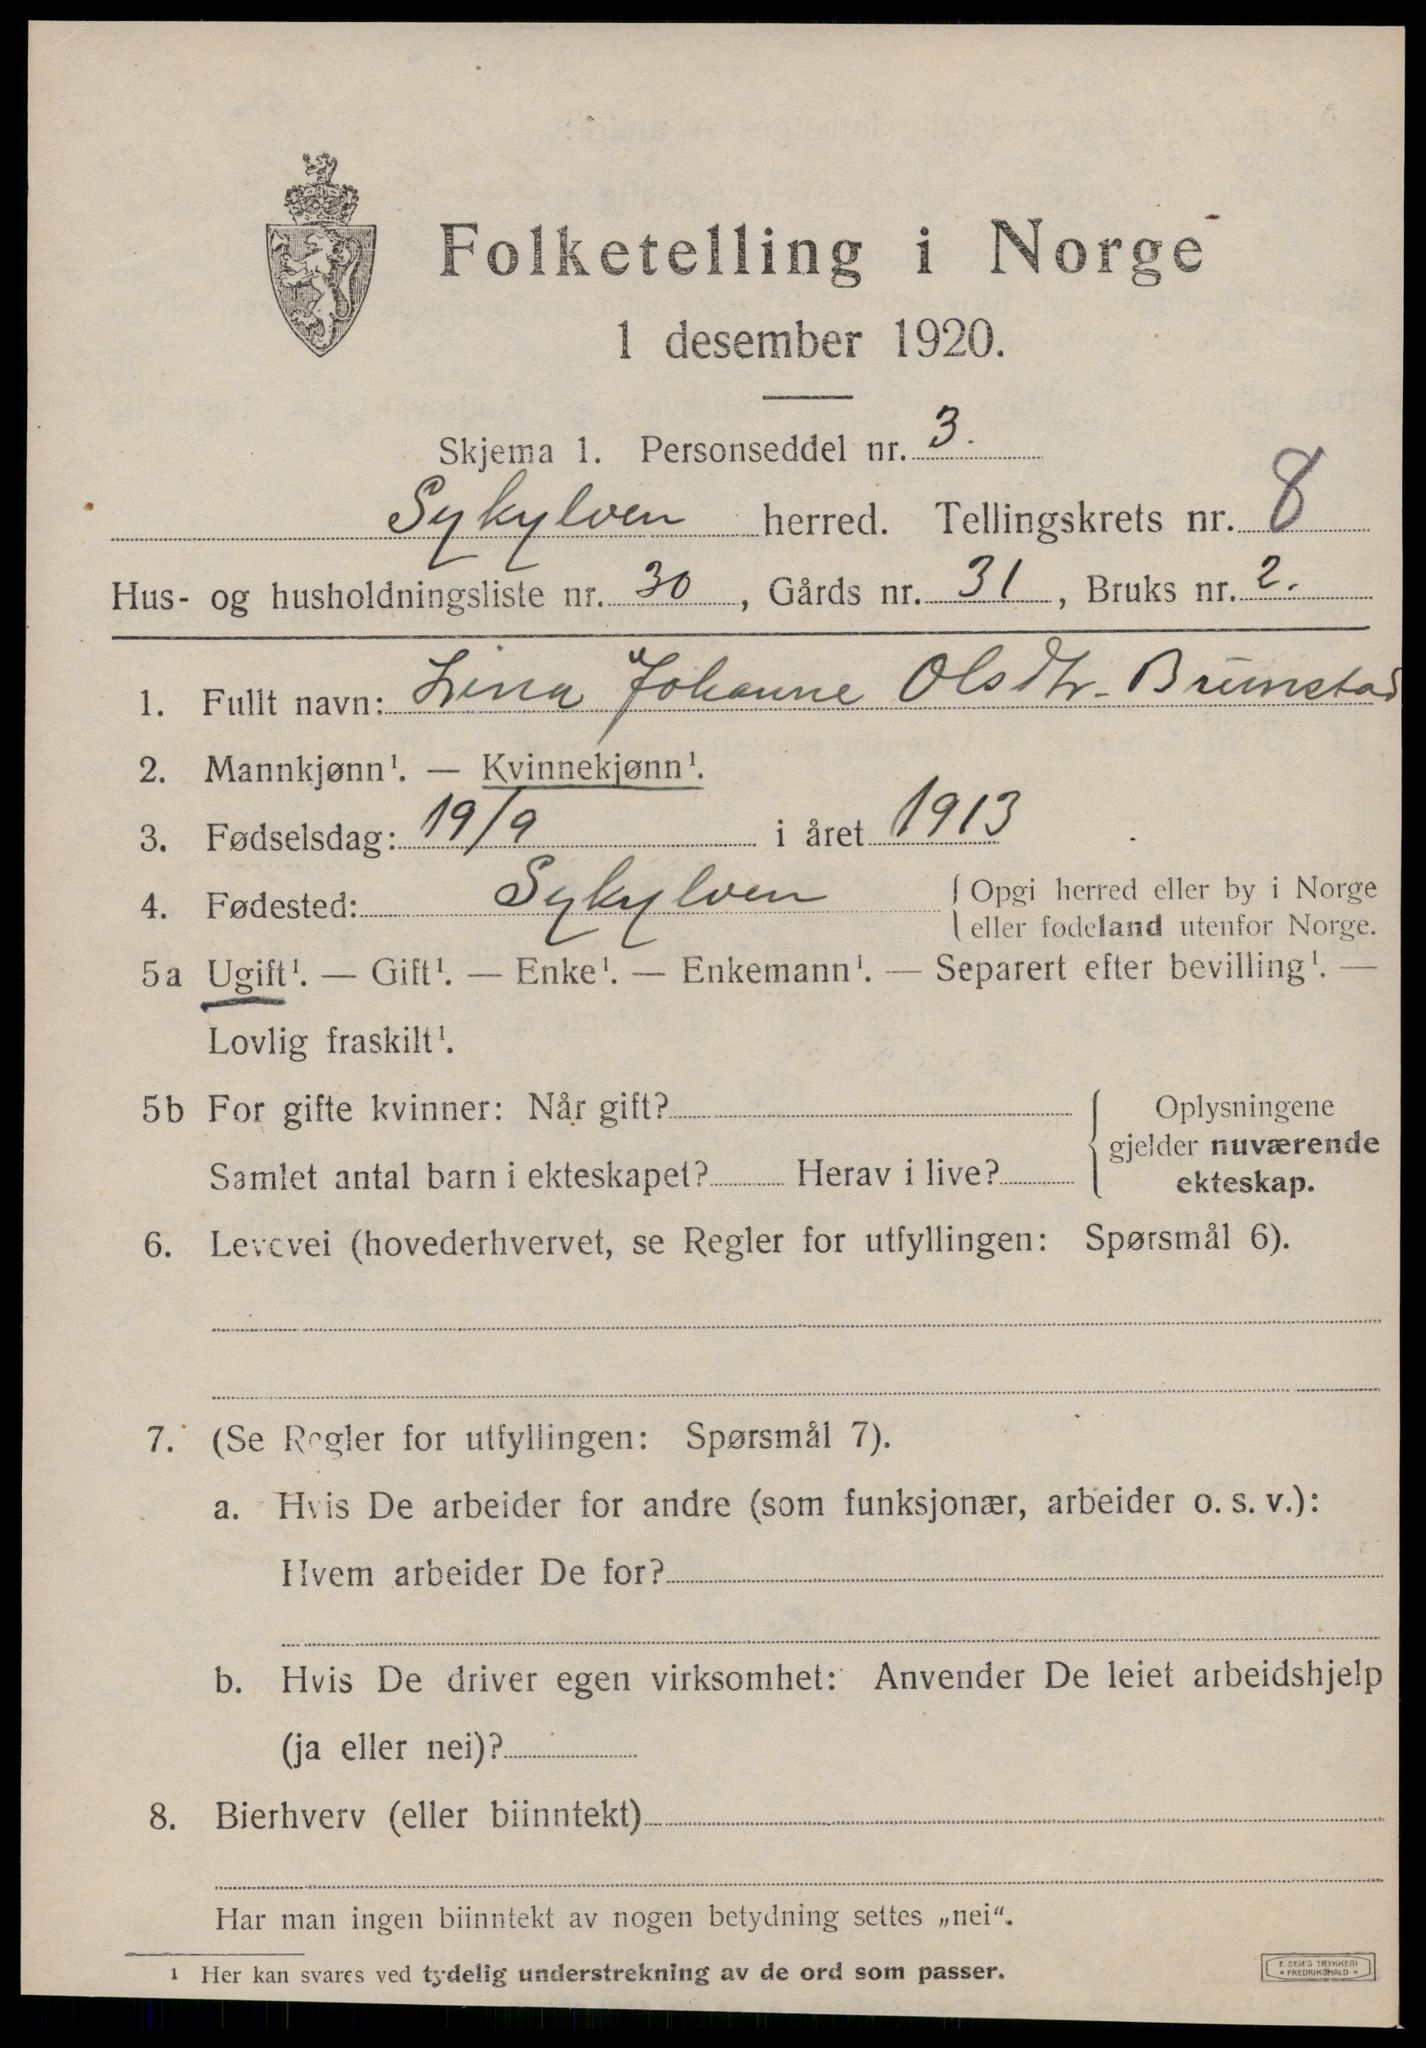 Folketelling i Norge
1 desember 1920.
Skjema 1. Personseddel nr. 3.
Sykylven herred. Tellingskrets nr. 8
Hus- og husholdningsliste nr. 30, Gårds nr. 31, Bruks nr. 2.
1. Fullt navn: Lina Johanne Olsdtr. Brunstad
2. Mannkjønn¹. — Kvinnekjønn¹.
3. Fødselsdag: 19/9 i året 1913
4. Fødested: Sykylven { Opgi herred eller by i Norge
eller fødeland utenfor Norge.
5a Ugift¹. — Gift¹. — Enke¹. — Enkemann¹. — Separert efter bevilling¹. —
Lovlig fraskilt¹.
5b For gifte kvinner: Når gift? { Oplysningene
gjelder nuværende
Samlet antal barn i ekteskapet? Herav i live? ekteskap.
6. Levevei (hovederhvervet, se Regler for utfyllingen: Spørsmål 6).
7. (Se Regler for utfyllingen: Spørsmål 7).
a. Hvis De arbeider for andre (som funksjonær, arbeider o. s. v.):
Hvem arbeider De for?
b. Hvis De driver egen virksomhet: Anvender De leiet arbeidshjelp
(ja eller nei)?
8. Bierhverv (eller biinntekt)
Har man ingen biinntekt av nogen betydning settes „nei“.
¹ Her kan svares ved tydelig understrekning av de ord som passer.
E. SEM'S TRYKKERI
FREDRIKSHALD